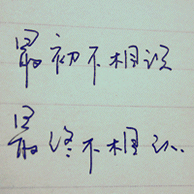 最初不相识
最终不相认.